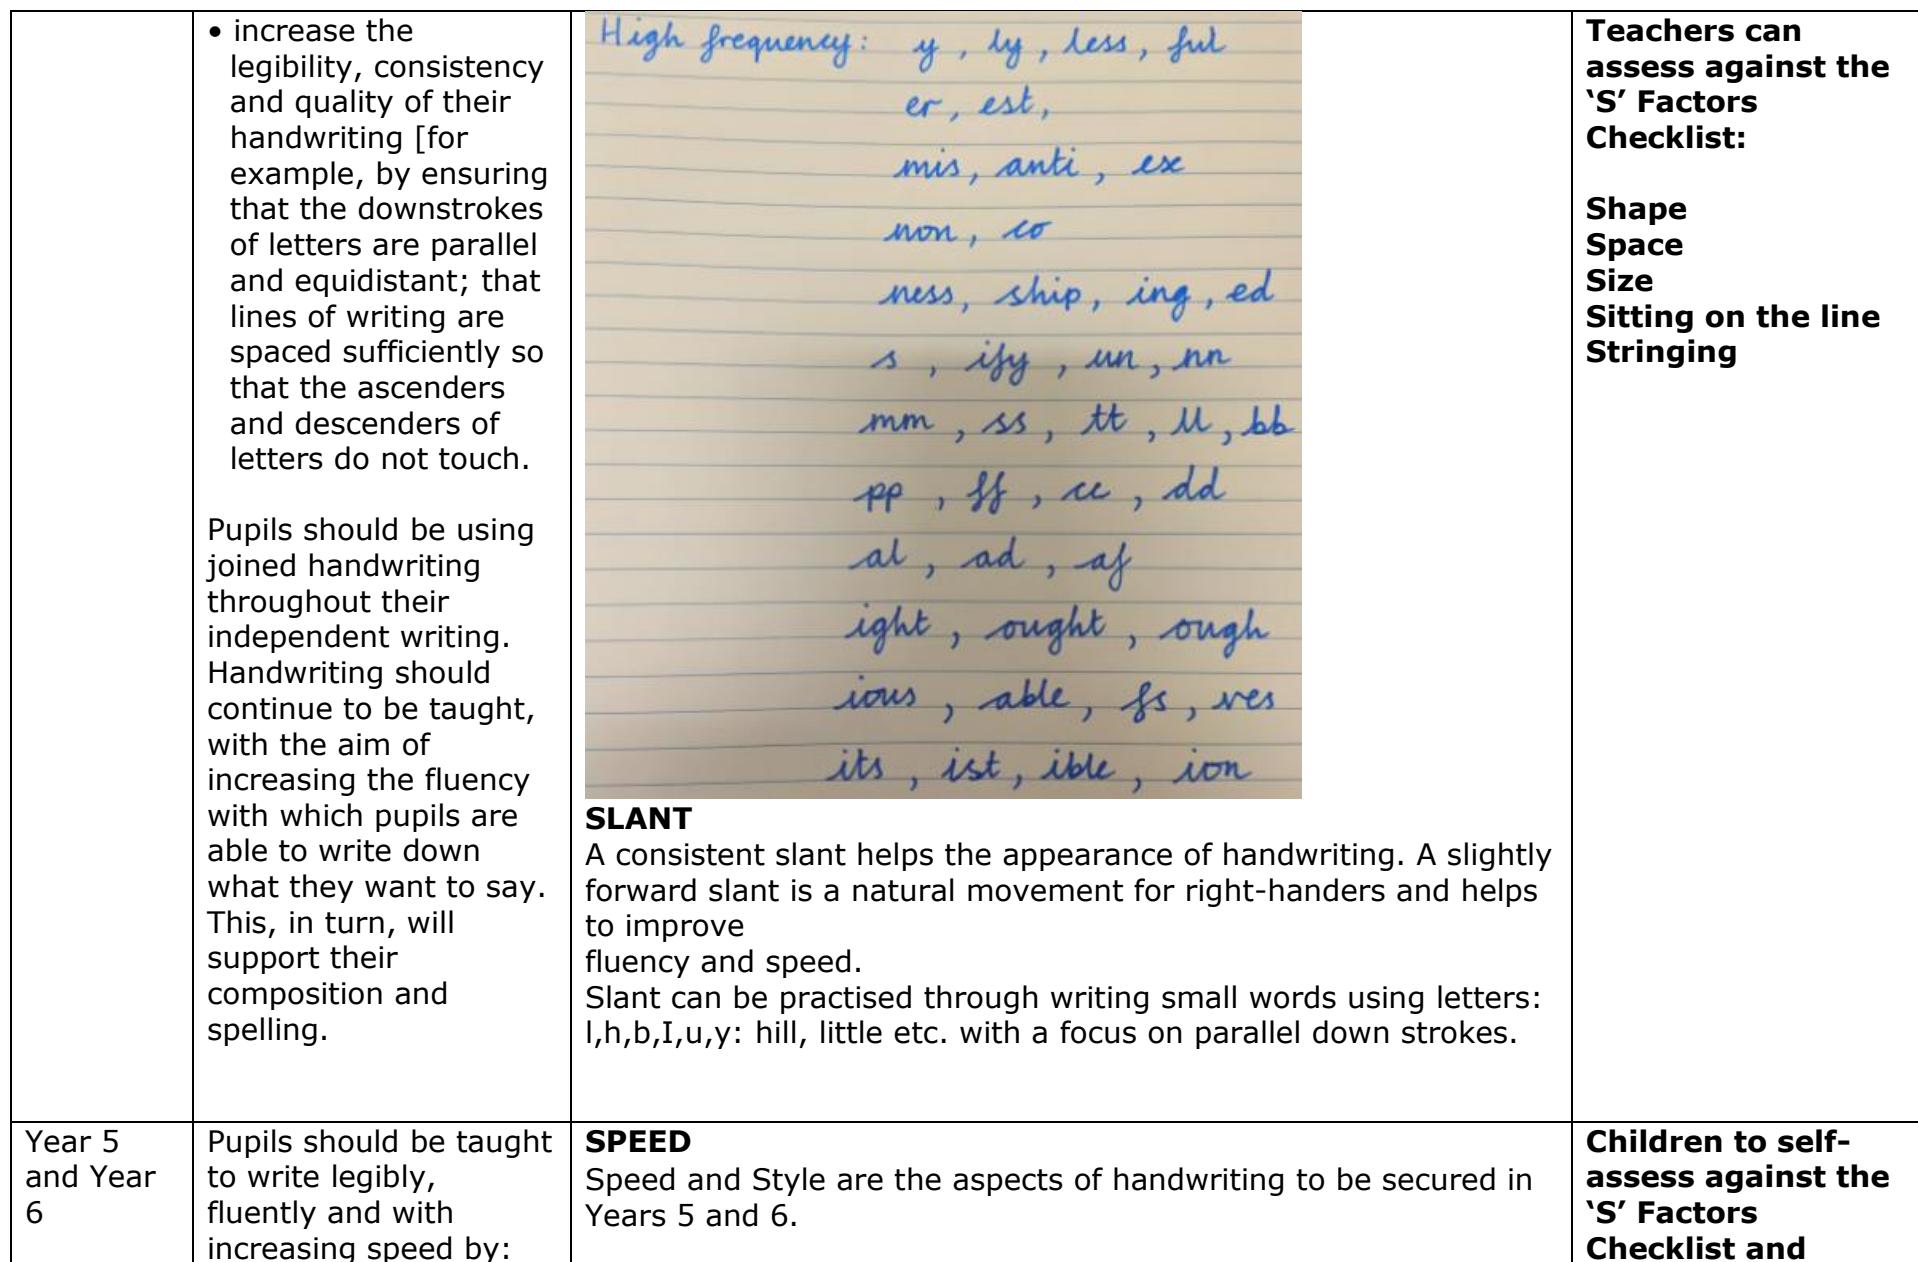 • increase the
legibility, consistency
and quality of their
handwriting [for
example, by ensuring
that the downstrokes
of letters are parallel
and equidistant; that
lines of writing are
spaced sufficiently so
that the ascenders
and descenders of
letters do not touch.
Pupils should be using
joined handwriting
throughout their
independent writing.
Handwriting should
continue to be taught,
with the aim of
increasing the fluency
with which pupils are
able to write down
what they want to say.
This, in turn, will
support their
composition and
spelling.
High frequency: y, ly, less, ful
er, est,
mis, anti, ex
non, co
ness, ship, ing, ed
s, ify, un, nn
mm, ss, tt, ll, bb
pp, ff, cc, dd
al, ad, af
ight, ought, ough
ious, able, fs, ves
its, ist, ible, ion
SLANT
A consistent slant helps the appearance of handwriting. A slightly
forward slant is a natural movement for right-handers and helps
to improve
fluency and speed.
Slant can be practised through writing small words using letters:
l,h,b,I,u,y: hill, little etc. with a focus on parallel down strokes.
Teachers can
assess against the
‘S’ Factors
Checklist:
Shape
Space
Size
Sitting on the line
Stringing
Year 5
and Year
6
Pupils should be taught
to write legibly,
fluently and with
increasing speed by:
SPEED
Speed and Style are the aspects of handwriting to be secured in
Years 5 and 6.
Children to self-
assess against the
‘S’ Factors
Checklist and